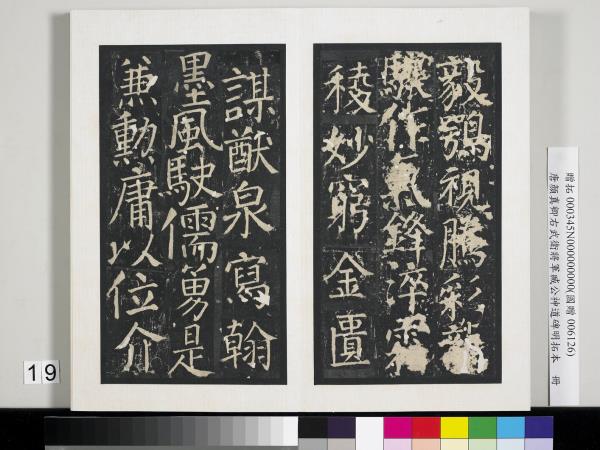 毅鶚視騰彩龍
驤作氣鋒淬霜
稜妙窮金匱
謀猷泉寫翰
墨風駛儒勇是
兼勳庸以位介
贈拓 000345N000000000(國贈 006126)
唐顏真卿右武衛將軍臧公神道碑明拓本 冊
19